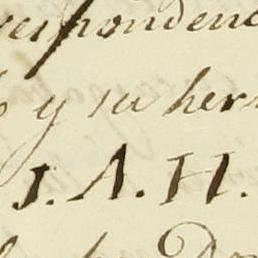 respondenc
y su her
J. A. H.